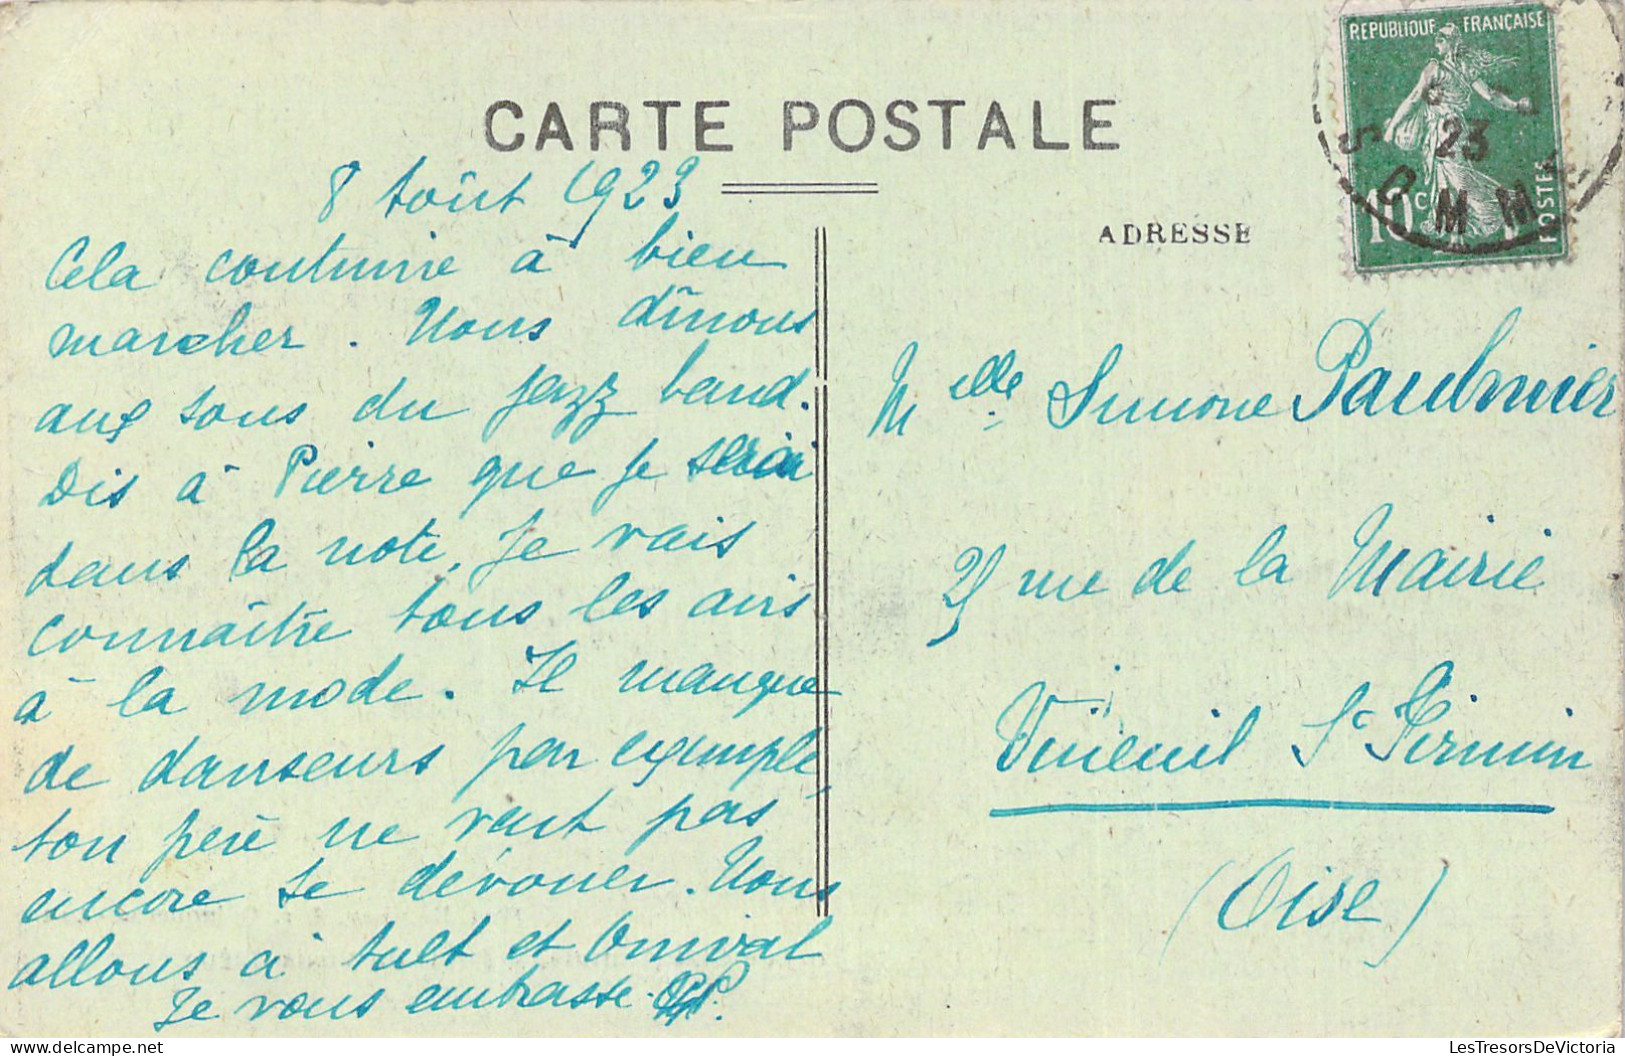 CARTE POSTALE
REPUBLIQUE FRANÇAISE
10c POSTES
23
SOMME
8 Août 1923
Cela continue à bien
marcher. Nous dînons
aux sons du jazz band.
Dis à Pierre que je serai
dans la note, je vais
connaître tous les airs
à la mode. Il manque
de danseurs par exemple,
ton père ne veut pas
encore se dévouer. Nous
allons à Ault et Onival
Je vous embrasse.
ADRESSE
Melle Simone Paulmier
25 rue de la Mairie
Vineuil St Firmin
(Oise)
LesTresorsDeVictoria